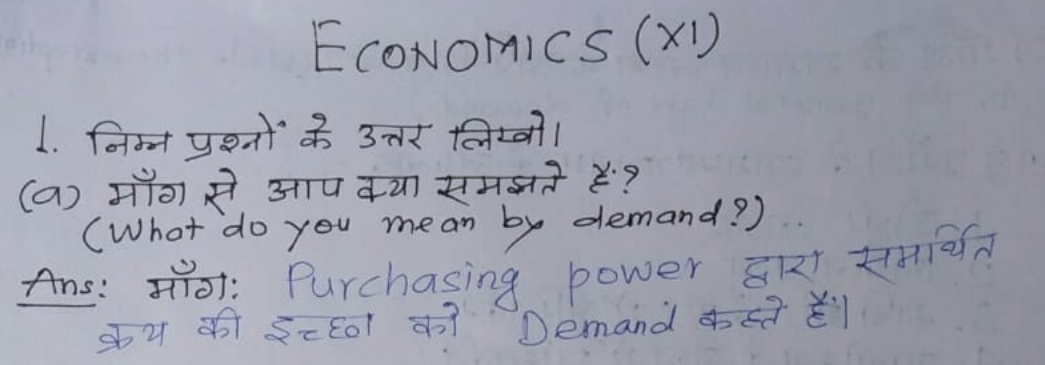 ECONOMICS (XI)
1. निम्न प्रश्नों के उत्तर लिखो।
(a) माँग से आप क्या समझते हैं?
(What do you mean by demand?)
Ans: माँग: Purchasing power द्वारा समर्थित
क्रय की इच्छा को Demand कहते हैं।